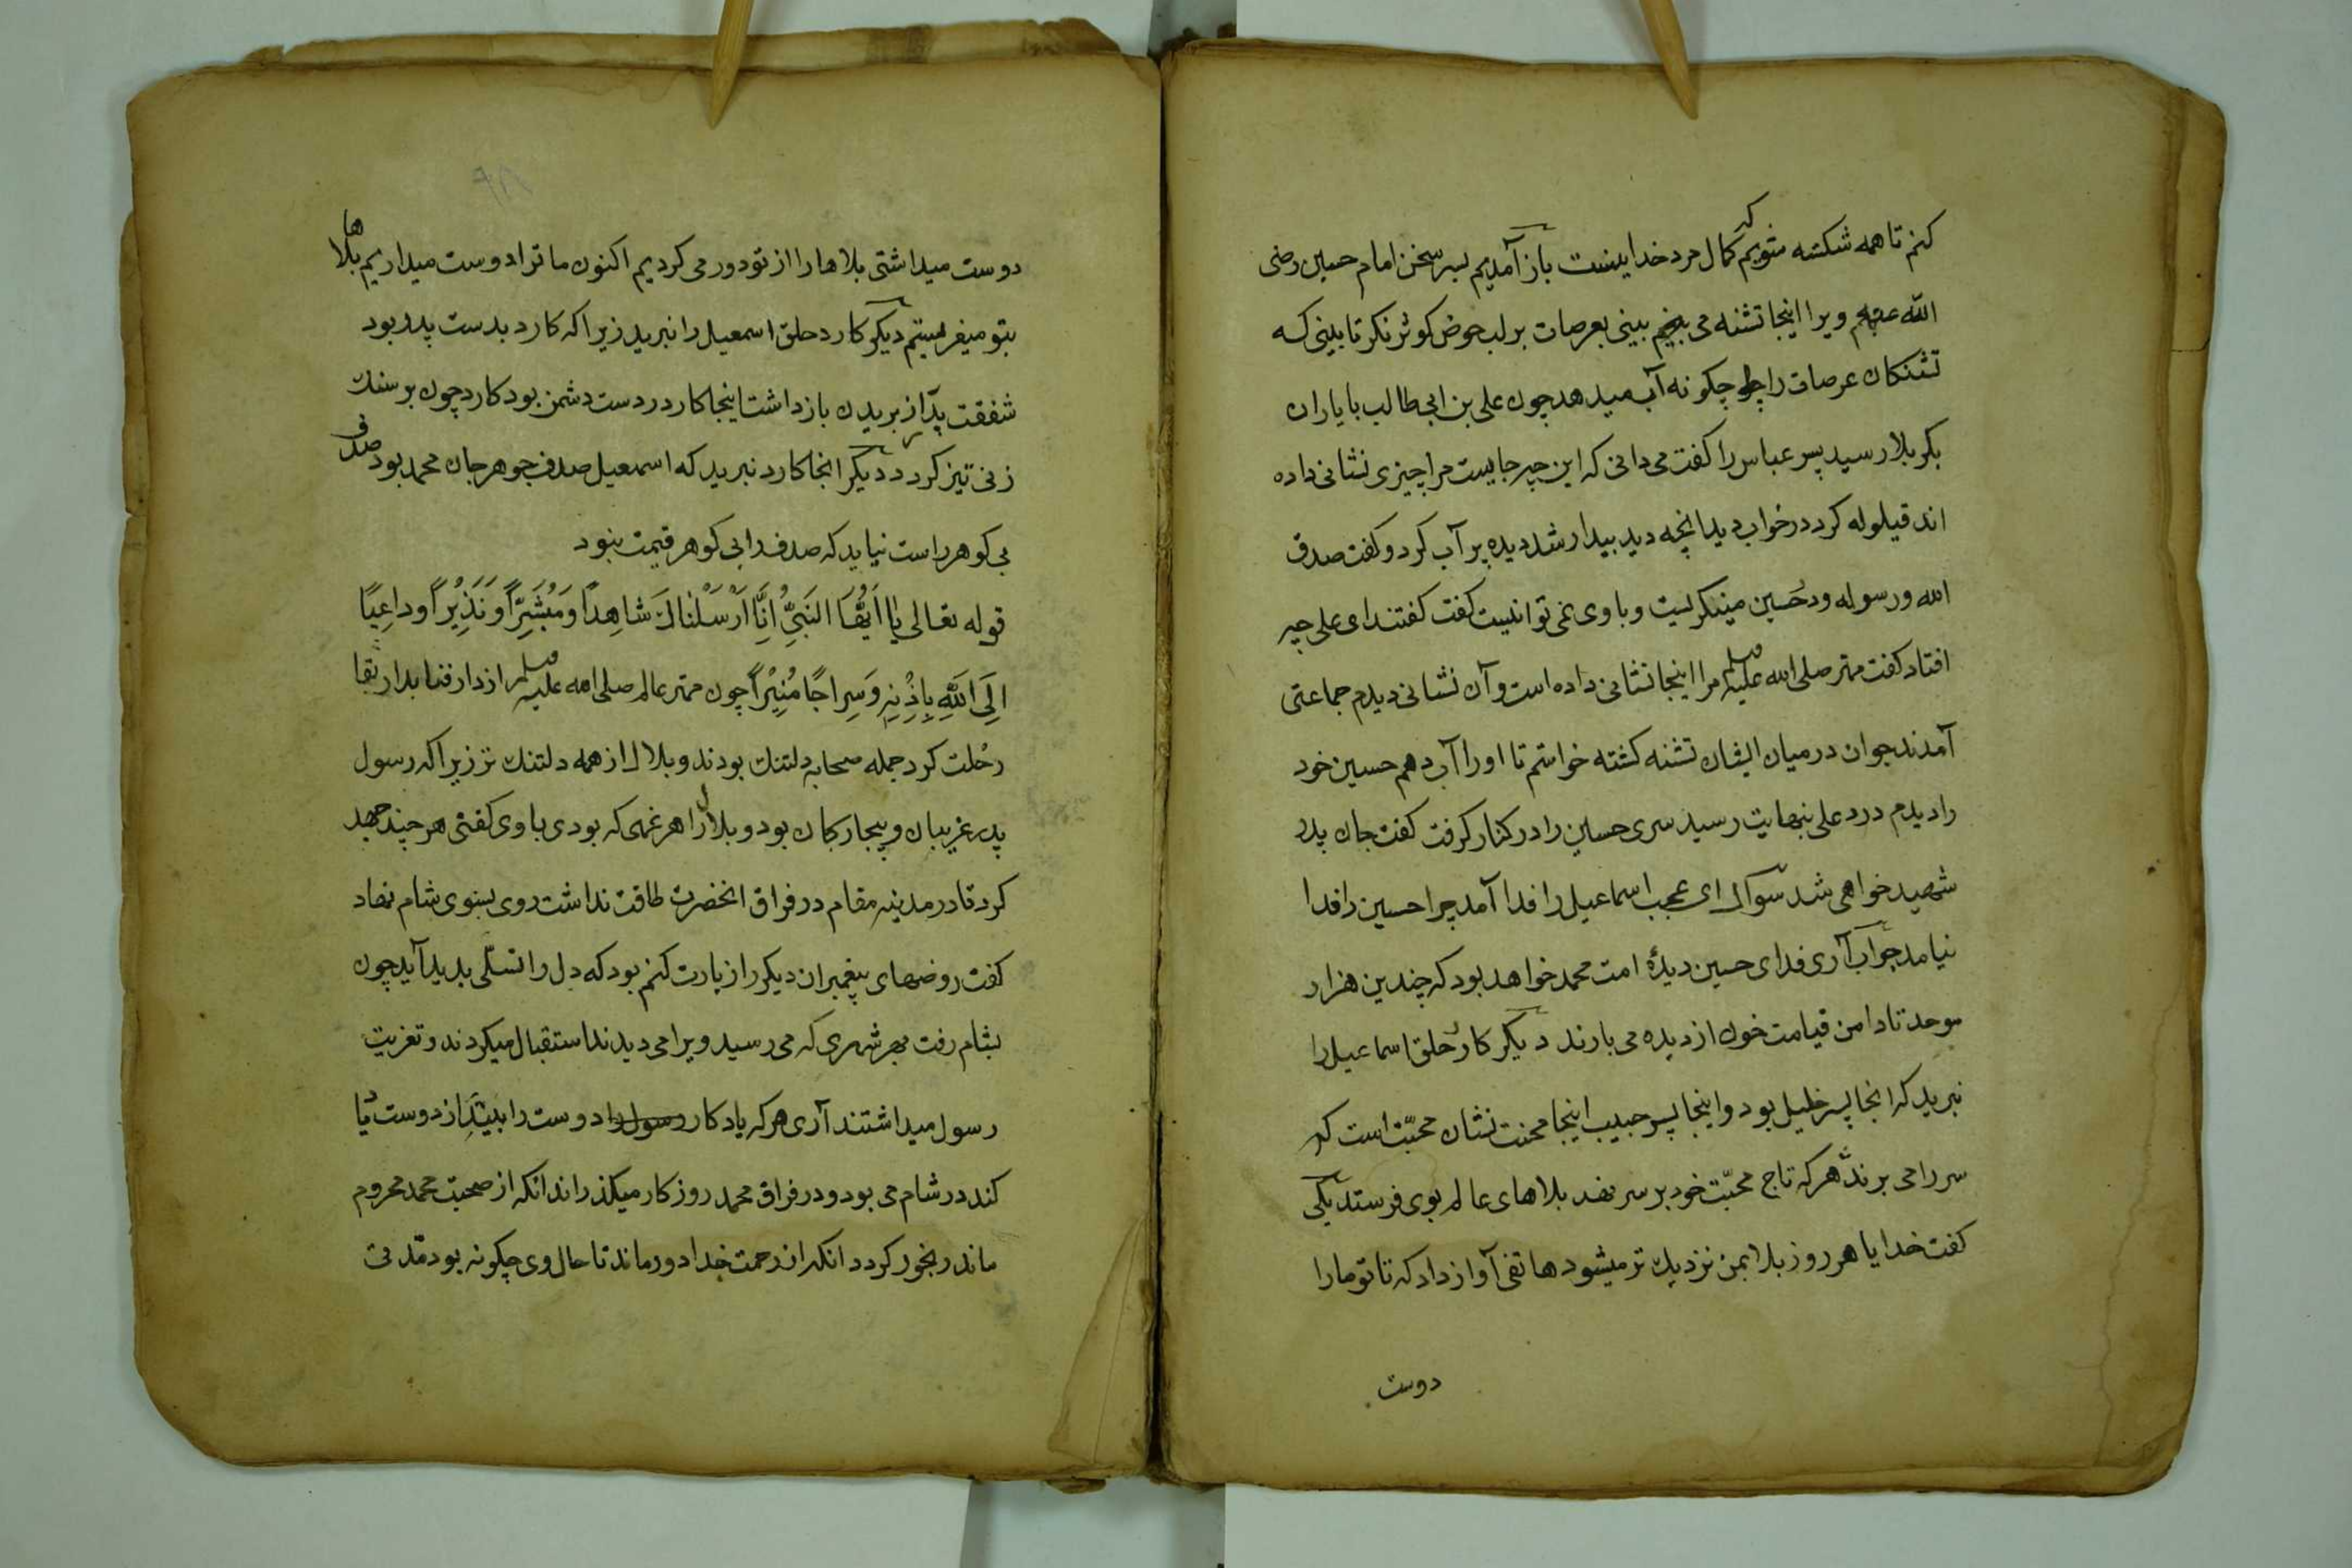 کنم تا همه شکسته شویم که کمال مرد خدا اینست باز آمدیم بسر سخن امام حسین رضی
الله عنهم ویرا اینجا تشنه می بینی بعرصات بر لب حوض کوثر نکر تا بینی که
تشنکان عرصات را چکونه آب میدهد چون علی بن ابی طالب با یاران
بکربلا رسید پسر عباس را کفت می دانی که این چه جایست مرا چیزی نشانی داده
اند قیلوله کرد در خواب دید انچه دید بیدار شد دیده پر آب کرد و کفت صدق
الله و رسوله و در حسین مینکریست و با وی نمی توانست کفت کفتند ای علی چه
افتاد کفت مهتر صلی الله علیه وسلم مرا اینجا نشانی داده است و آن نشانی دیدم جماعتی
آمدند جوان در میان ایشان تشنه کشته خواستم تا او را آب دهم حسین خود
را دیدم درد علی بنهایت رسید سری حسین را در کنار کرفت کفت جان پدر
شهید خواهی شد سوال ای عجب اسماعیل را فدا آمد چرا حسین را فدا
نیامد جواب آری فدای حسین دیدهٔ امت محمد خواهد بود که چندین هزار
موحد تا دامن قیامت خون از دیده می بارند دیکر کارد حلق اسماعیل را
نبرید که انجا پسر خلیل بود و اینجا پسر حبیب اینجا محنت نشان محبّت است که
سر را می برند هر که تاج محبّت خود بر سر نهد بلاهای عالم بوی فرستد یکی
کفت خدایا هر روز بلا بمن نزدیک تر میشود هاتفی آواز داد که تا تو ما را
دوست
۹۸
دوست میداشتی بلاها را از تو دور می کردیم اکنون ما ترا دوست میداریم بلاها
بتو میفرستیم دیکر کارد حلق اسمعیل را نبرید زیرا که کارد بدست پدر بود
شفقت پدر از بریدن باز داشت اینجا کارد در دست دشمن بود کارد چون بر سنک
زنی تیز کردد دیکر انجا کارد نبرید که اسمعیل صدف جوهر جان محمد بود صدف
بی کوهر راست نیاید که صدف را بی کوهر قیمت نبود
قوله تعالی یٰا اَیُّهَا النَبِیُّ اِنَّا اَرْسَلْنٰاكَ شَاهِداً وَمُبَشِّراً وَنَذِیْراً وداعِیًا
اِلَی اللّٰهِ بِاِذْنِهِ وَسِراجًا مُنِیْراً چون مهتر عالم صلی الله علیه وسلم از دار فنا بدار بقا
رحلت کرد جمله صحابه دلتنک بودند و بلال از همه دلتنک تر زیرا که رسول
پدر غریبان و بیچارکان بود و بلال را هر غمی که بودی با وی کفتی هر چند جهد
کرد تا در مدینه مقام در فراق انحضرت طاقت نداشت روی بسوی شام نهاد
کفت روضهای پیغمبران دیکر را زیارت کنم بود که دل را تسلّی بدید آید چون
بشام رفت بهر شهری که می رسید ویرا می دیدند استقبال میکردند و تعزیت
رسول میداشتند آری هر که یادکار رسول را دوست را ببیند از دوست یا
کند در شام می بود و در فراق محمد روزکار میکذراند انکه از صحبت محمد محروم
ماند رنجور کردد انکه از رحمت خدا دور ماند تا حال وی چکونه بود مدّتی